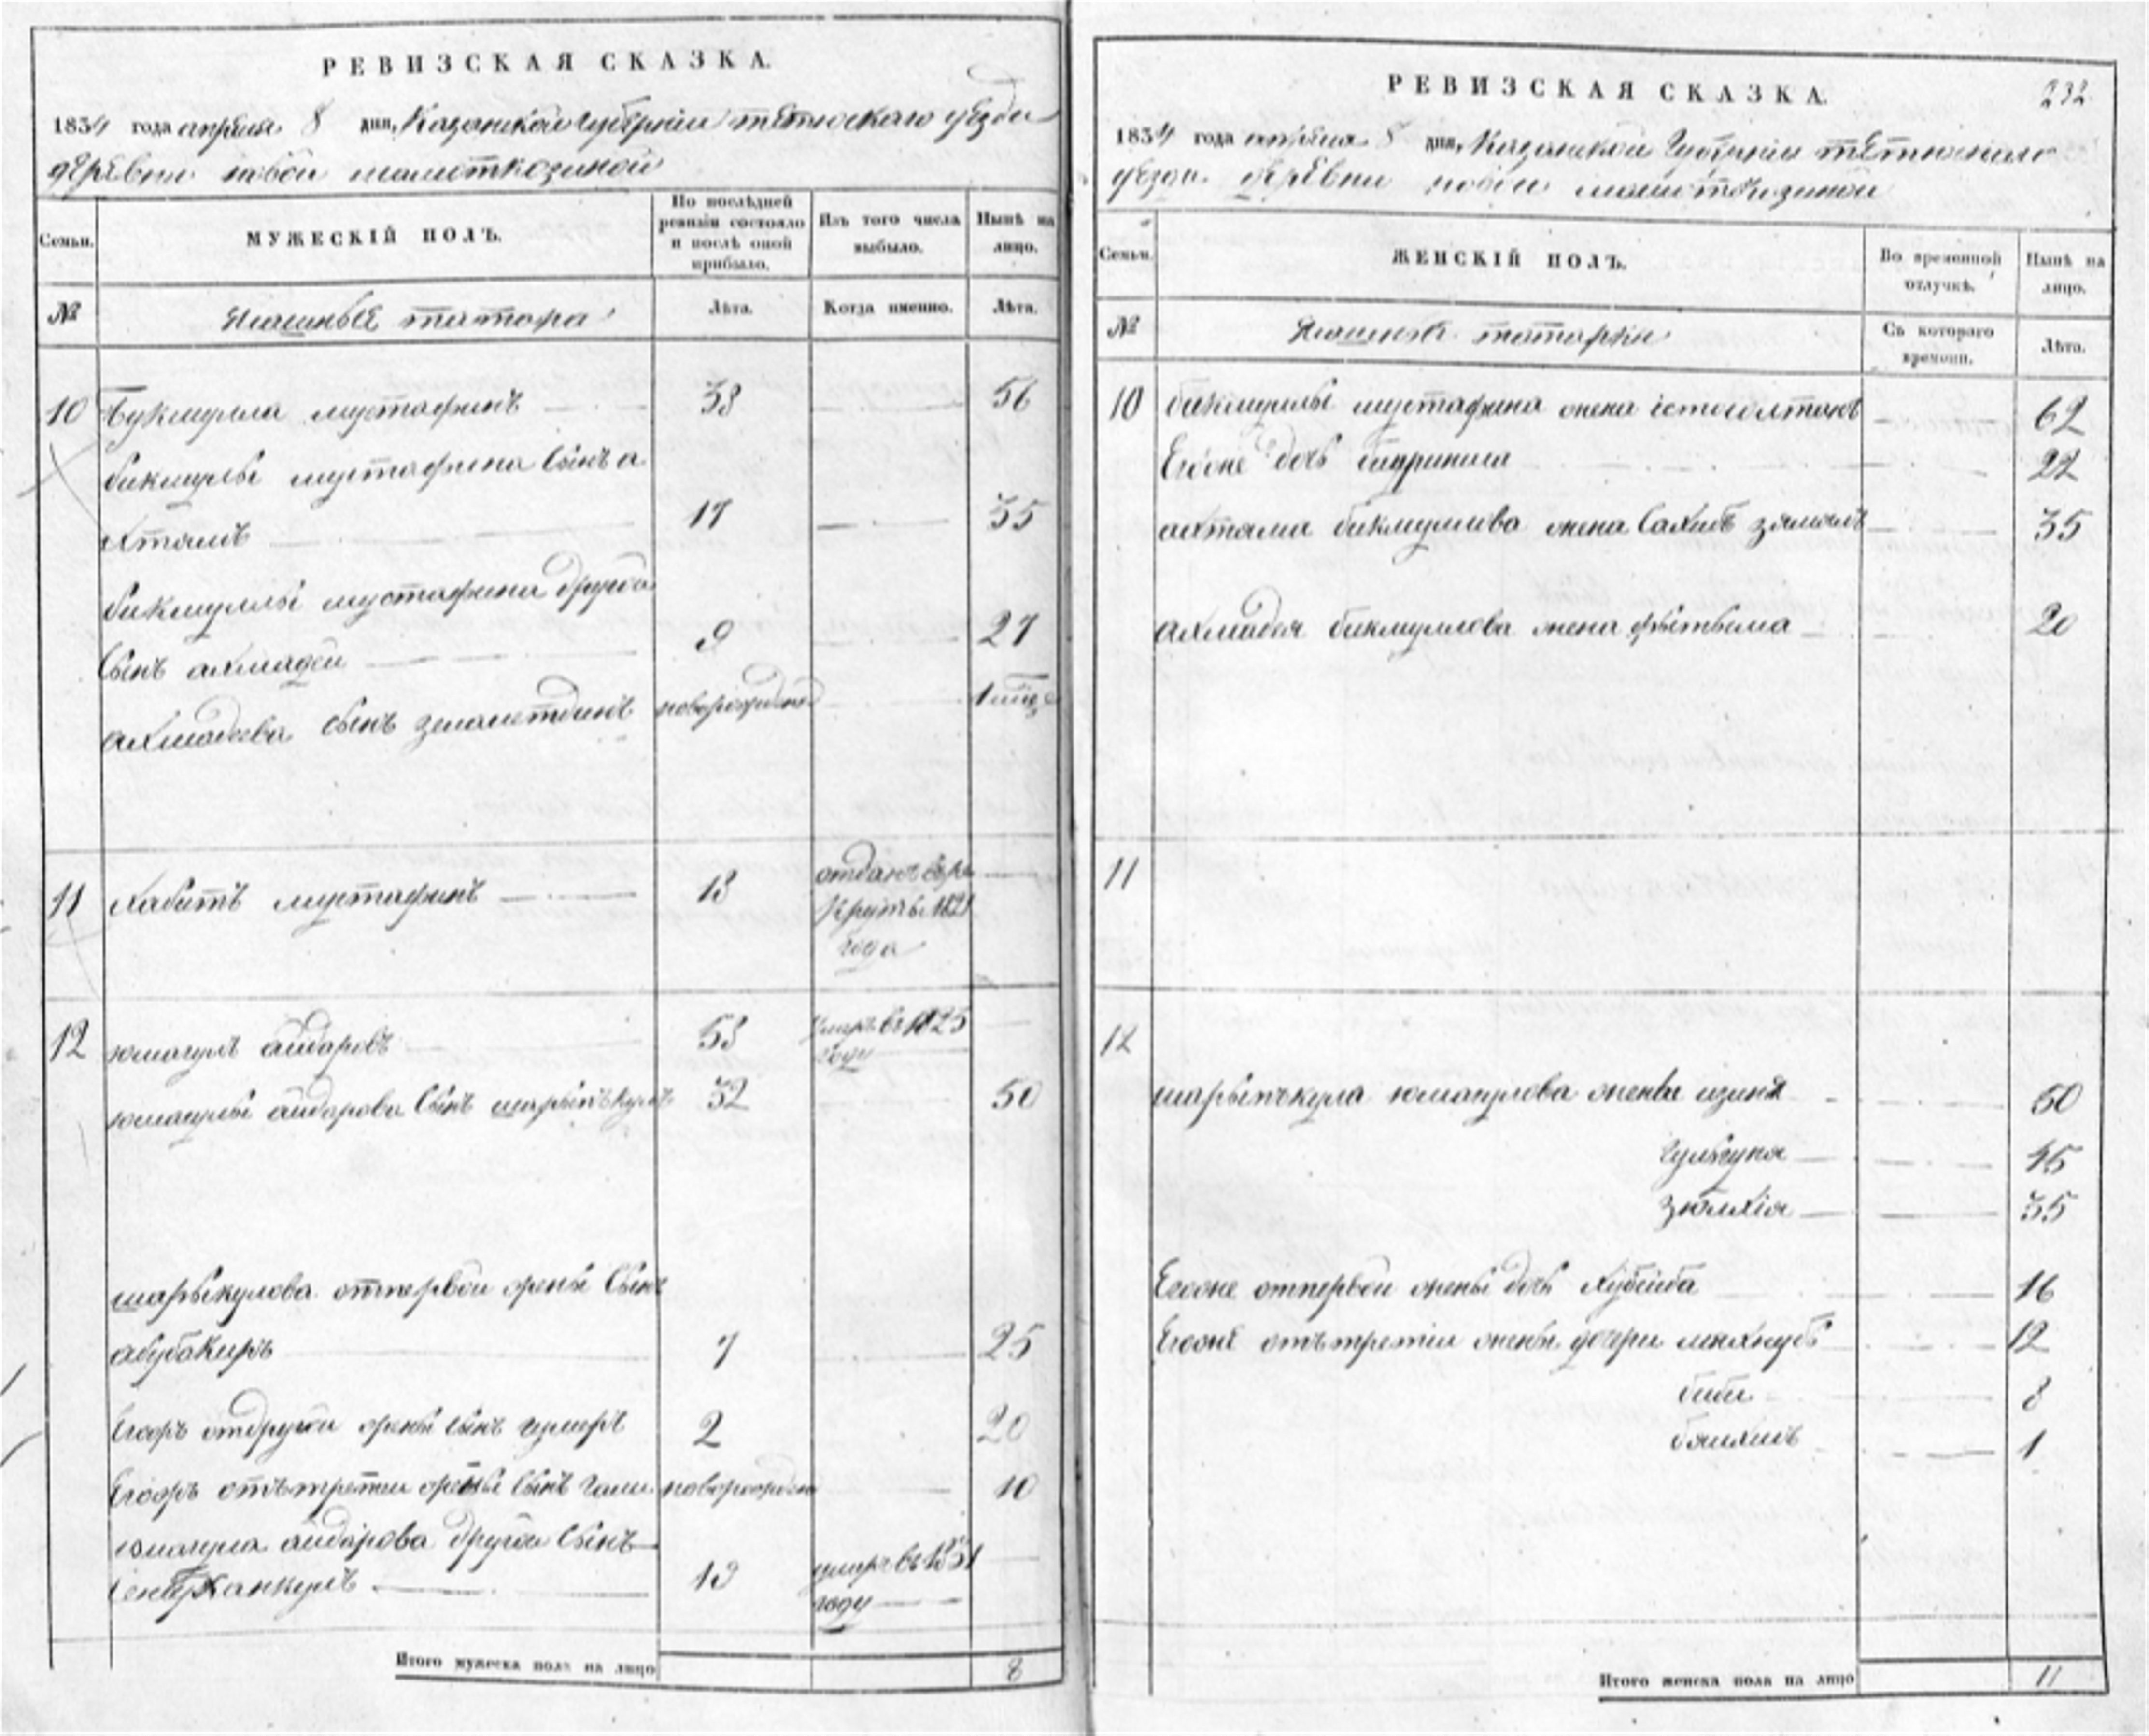 РЕВИЗСКАЯ СКАЗКА.
1834 года апреля 8 дня, Казанской Губернии тетюскаго уезда
деревни новой
Семьи.
МУЖЕСКІЙ ПОЛЪ.
По послѣдней ревизіи состояло и послѣ оной прибыло.
Изъ того числа выбыло.
Нынѣ на лицо.
№
татара
Лѣта.
Когда именно.
Лѣта.
10 Букмулла мустафинъ 38 56
бикмулы мустафина сынъ а
хтямъ 17 35
бикмуллы мустафина другой
сынъ ахмадей 9 27
ахмадеева сынъ новорожден 1
11 Хабитъ мустафинъ 13 отданъ в ре
круты 1821
года
12 юмагулъ айдаровъ 53 умеръ въ 1825
году
юмагулы айдарова сынъ шарыпъкулъ 32 50
шарыкулова отпервой жены сынъ
абубакиръ 7 25
Егожъ отдругой жены сынъ гумеръ 2 20
Егожъ отътретей жены сынъ гали новорожден 10
юмагула айдарова другой сынъ
19 умеръ въ 1831
году
Итого мужеска пола на лицо 8
РЕВИЗСКАЯ СКАЗКА.
232
1834 года апреля 8 дня, Казанской Губернии тетюскаго
уезда деревни новой
Семьи.
ЖЕНСКІЙ ПОЛЪ.
Во временной отлучкѣ.
Нынѣ на лицо.
№
татарки
Съ котораго времени.
Лѣта.
10 бикмуллы мустафина жена 62
Егоже дочь 22
ахтяма бикмуллова жена Сахибъ зямалъ 35
ахмадея бикмуллова жена фатыма 20
11
12
шарыпъкула юмагулова жены 50
45
зюлхія 35
Егоже отпервой жены дочь хубейба 16
Егоже отътретей жены дочери 12
биби 8
1
Итого женска пола на лицо 11